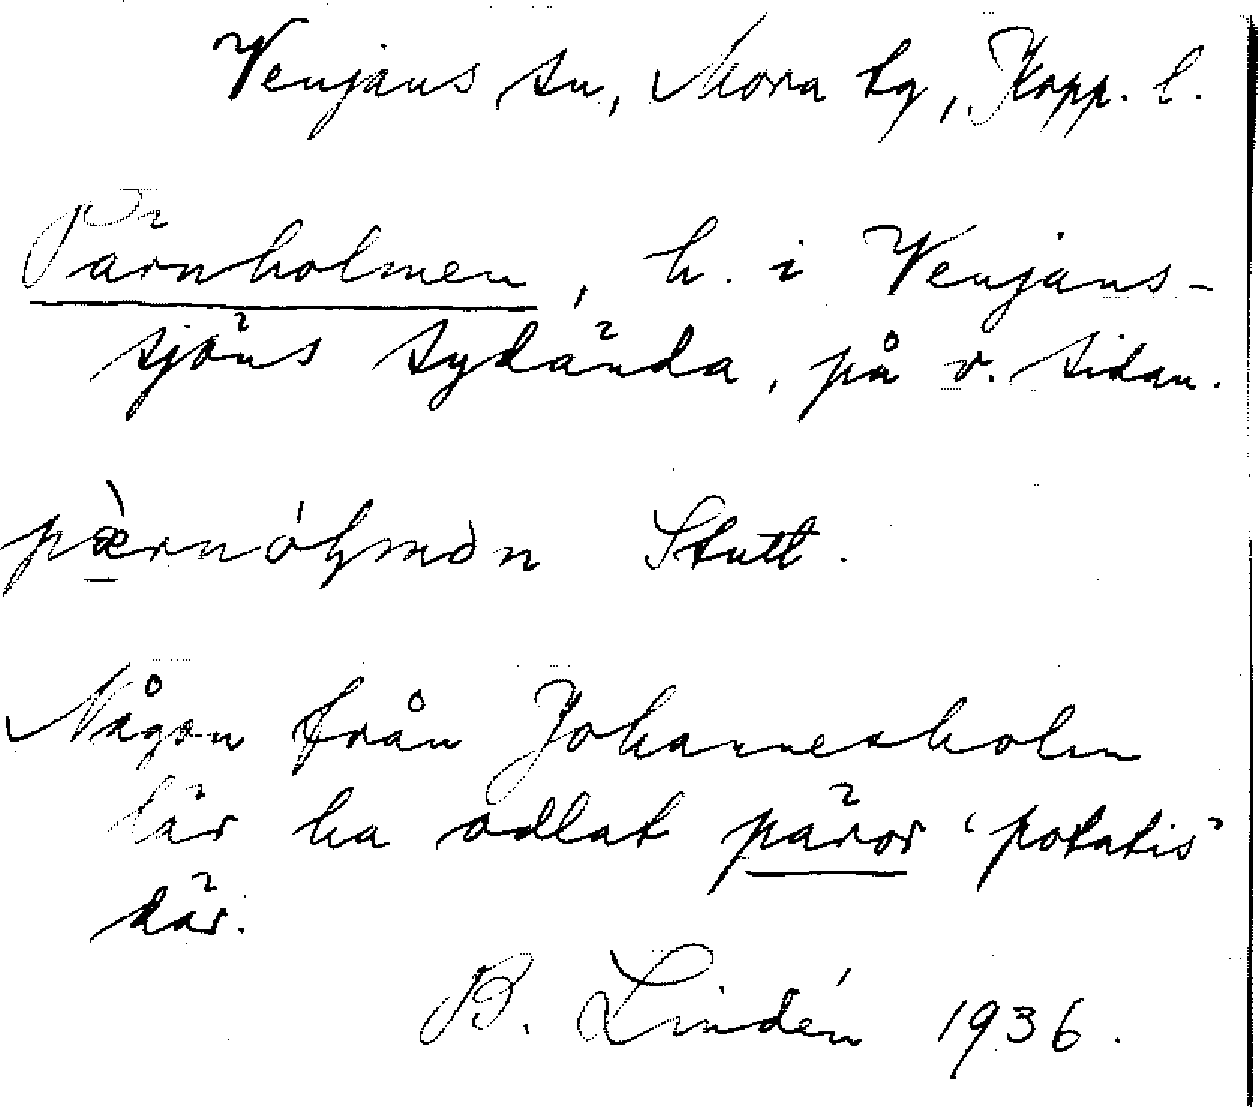 Venjans sn, Mora tg, Kopp. l.
Pärnholmen, h. i Venjans-
sjöns sydända, på v. sidan.
pæ̀rnóɬmən Stutt.
Någon från Johannesholm
lär ha odlat päror 'potatis'
där.
B. Lindén 1936.